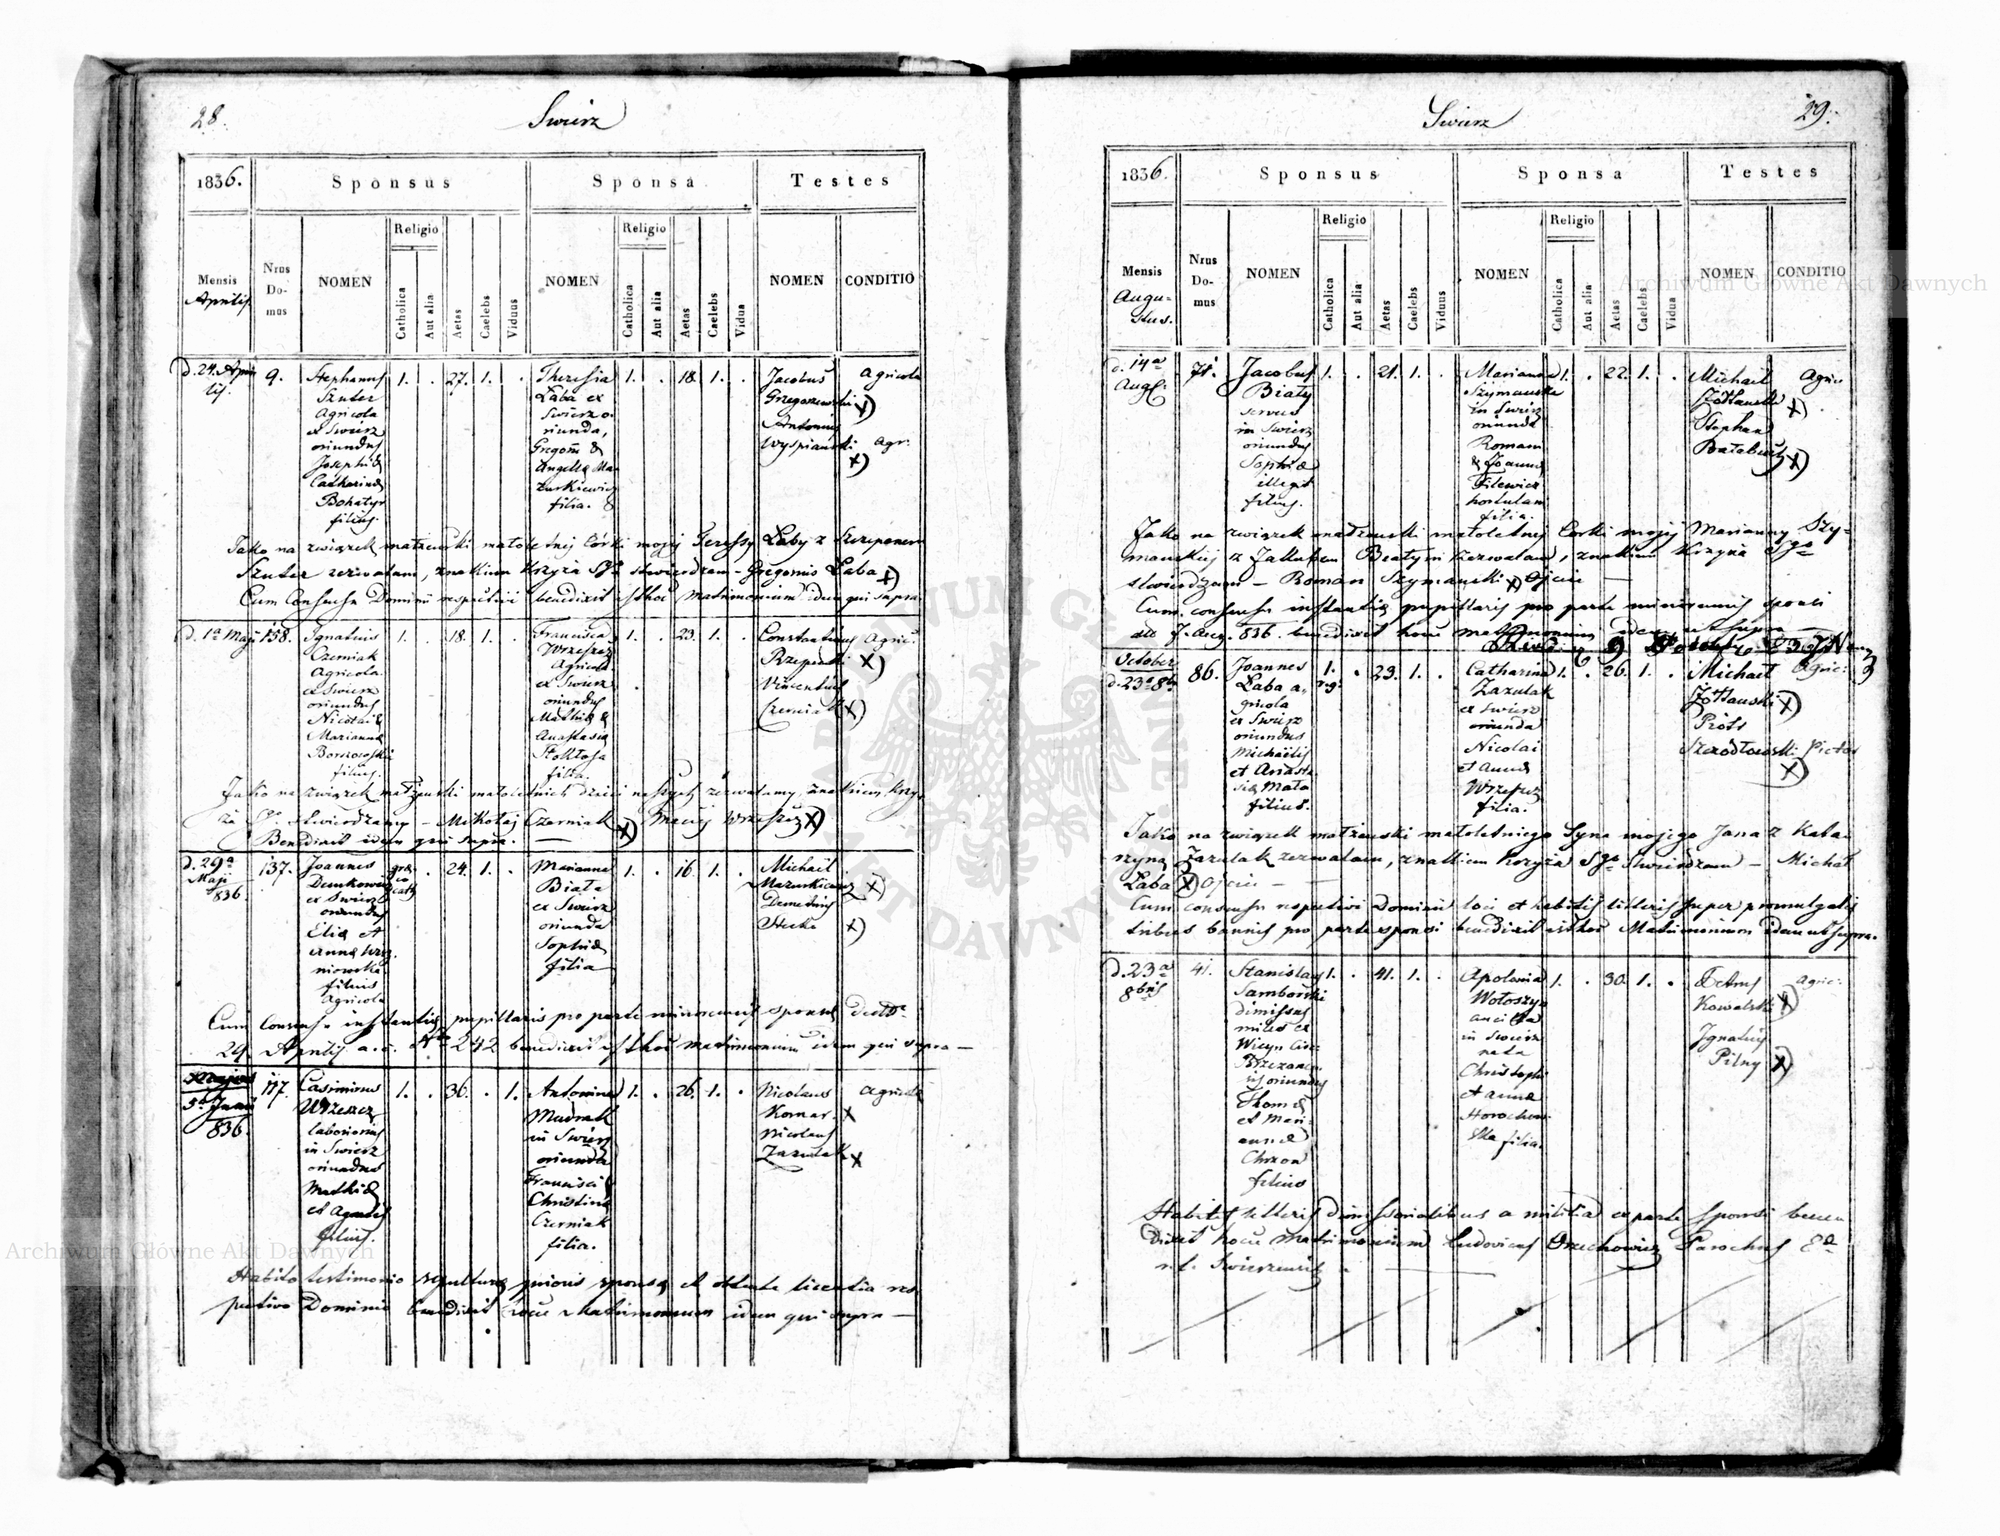 28.
Swirz
1836.
Sponsus
Sponsa
Testes
Mensis
Aprilis
Nrus
Do-
mus
NOMEN
Religio
Catholica
Aut alia
Aetas
Caelebs
Viduus
NOMEN
Religio
Catholica
Aut alia
Aetas
Caelebs
Vidua
NOMEN
CONDITIO
d. 24. Apri
lis.
9.
Stephanus
Szuter
Agricola
ex Swirz
oriundus
Josephi &
Catharinae
Bohatyr
filius.
1. . 27. 1. .
Theresia
Łaba ex
Swirz o-
riunda,
Gregorii &
Angela Ma-
zurkiewicz
filia.
1. . 18. 1. .
Jacobus
Grzegorzewski X)
Antonius
Wyspiański X)
Agricola
agr:
Jako na związek małżeński małoletniej Córki mojej Teressy Łaby z Szczepanem
Szuter zezwalam, znakiem Krzyża Sgo stwierdzam - Gregorius Łaba X)
Cum Consensu Dominii respectivi benedixit isthoc matrimonium idem qui supra
d. 1a Maji
158.
Ignatius
Czerniak
Agricola
ex Swirz
oriundus
Nicolai &
Marianna
Borisowski
filius.
1. . 18. 1. .
Francisca
Wrzeszcz
Agricola
ex Swirz
oriunda
Mathiae &
Anastasia
Stokłosa
filia.
1. . 23. 1. .
Constantinus
Rzepecki X)
Vincentius
Czerniak X)
Agric:
Jako na związek małżeński małoletnich dzieci naszych zezwalamy, znakiem krzy-
ża Sgo stwierdzamy - Mikołaj Czerniak X) Maciej Wrzeszcz X)
Benedixit idem qui supra.
d. 29a
Maji
836
137.
Joannes
Demkowicz
ex Swirz
oriundus
Eliae et
Anna
filius
Agricola
. 24. 1. .
Marianna
Biała
ex Swirz
oriunda
Sophiae
filia
1. . 16. 1. .
Michael
Mazurkiewicz X)
Demetrius
X)
Cum Consensu instantiae pupillaris pro parte minorennis sponsae
29. Aprilis a. c. No 242 benedixit isthoc matrimonium idem qui supra -
5a Junii
836.
117.
Casimirus
Wrzeszcz
laboriosus
in Swirz
oriundus
Mathiae
et Agnetis
filius.
1. . 36. . 1.
Antonina
Mudrak
in Swirz
oriunda
Francisci &
Christina
Czerniak
filia.
1. . 26. 1. .
Nicolaus
Komar. X
Nicolaus
Zazulak X
Agricola
Habito testimonio sepulturae prioris sponsae et obtenta licentia res-
pectivo Dominio benedixit hocce Matrimonium idem qui supra -
Swirz
29.
1836.
Sponsus
Sponsa
Testes
Mensis
Augu-
stus.
Nrus
Do-
mus
NOMEN
Religio
Catholica
Aut alia
Aetas
Caelebs
Viduus
NOMEN
Religio
Catholica
Aut alia
Aetas
Caelebs
Vidua
NOMEN
CONDITIO
d. 14a
Aug:
71.
Jacobus
Biały
servus
in Swirz
oriundus
Sophiae
illegit
filius.
1. . 21. 1. .
Marianna
Szymanska
in Swirz
oriunda
Romani
& Joanna
Filewicz
hortulani
filia.
1. . 22. 1. .
Michael
Żółtanski X)
Stephan
X)
Agric:
Jako na związek małżeński małoletniej Corki mojej Marianny Szy-
manskiej z Jakubem Białym zezwalam, znakiem Krzyża Sgo
stwierdzam - Roman Szymanski X) Ojciec -
Cum consensu instantiae pupillaris pro parte minorennis sponsi
7. Aug. 836. benedixit hocce matrimonium idem ut supra
October
d. 23a 8bris
86.
Joannes
Łaba a-
gricola
ex Swirz
oriundus
Michaelis
et Anasta-
sia Mała
filius.
1. . 23. 1. .
Catharina
Zazulak
ex Swirz
oriunda
Nicolai
et Anna
Wrzeszcz
filia.
1. . 26. 1. .
Michael
Żółtanski X)
Piotr
X)
Agric:
Pictor
Jako na związek małżenski małoletniego Syna mojego Jana z Kata-
rzyną Zazulak zezwalam, znakiem krzyża Sgo stwierdzam - Michał
Łaba X) Ojciec -
Cum consensu respectivi Dominii loci et habitis litteris super promulgatis
tribus bannis pro parte sponsi benedixit isthoc Matrimonium idem ut supra.
d. 23a
8bris
41.
Stanislaus
Samborski
dimissus
miles ex
Wicyn Circ:
Brzezanen-
sis oriundus
Thoma
et Mari-
anna
Chrzon
filius
1. . 41. 1. .
Apolonia
Wołoszyn
ancilla
in Swirz
nata
Christophi
et Anna
Horochow-
ska filia.
1. . 30. 1. .
Petrus
Kowalski X)
Ignatius
Pilny X)
Agric:
Habitis litteris dimissorialibus a militia ex parte sponsi bene-
dixit hocce Matrimonium Ludovicus Orzechowicz Parochus
Archiwum Główne Akt Dawnych
Archiwum Główne Akt Dawnych
ARCHIWUM GŁÓWNE AKT DAWNYCH